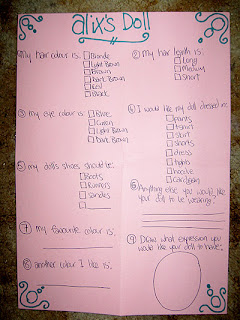 alix's Doll
① My hair colour is:
Blonde
Light Brown
Brown
Dark Brown
Red
Black
② My hair length is:
Long
Medium
Short
③ My eye colour is:
Blue
Green
Light Brown
Dark Brown
④ I would like my doll dressed in:
pants
tshirt
skirt
shorts
dress
tights
hoodie
cardigan
⑤ My dolls shoes should be:
Boots
Runners
sandles
⑥ Anything else you would like
your doll to be wearing?
⑦ My favourite colour is:
⑧ another colour I like is:
⑨ Draw what expression you
would like your doll to have: